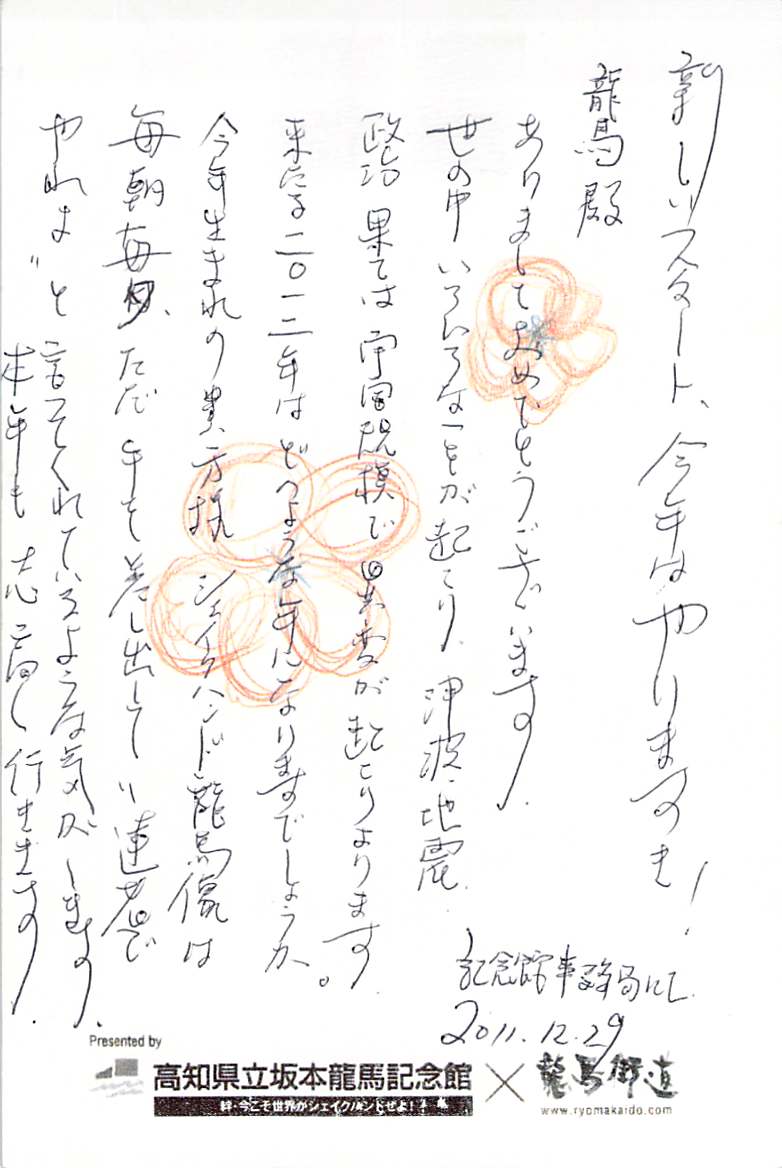 新しいスタート、今年はやりますき!
龍馬殿
ありましておめでとうございます
世の中いろいろなことが起こり、津波・地震
政治 果ては宇宙規模で異変が起こりよります
来たる二〇一二年はどのような年になりますでしょうか。
今年生まれの貴方様 シェイクハンド龍馬像は
毎朝毎夕、ただ手を差し出して〃達者で
やれよ〃と言ってくれているような気がします。
本年も志高く行きます。
記念館事務局にて
2011.12.29
Presented by
高知県立坂本龍馬記念館×龍馬街道
絆・今こそ世界がシェイクハンドぜよ!
www.ryomakaido.com